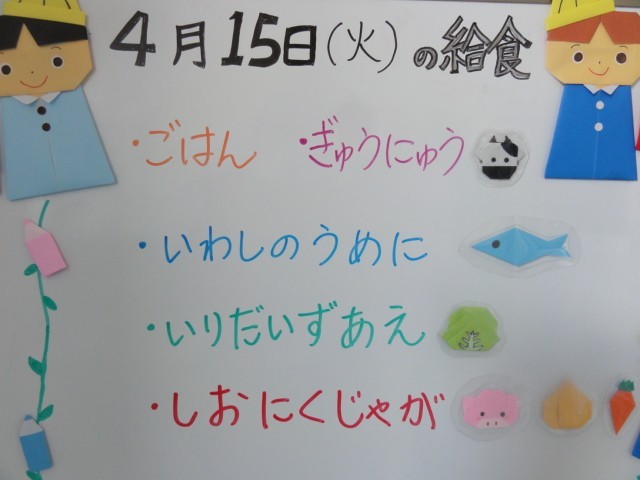 4月15日(火)の給食
・ごはん ・ぎゅうにゅう
・いわしのうめに
・いりだいずあえ
・しおにくじゃが